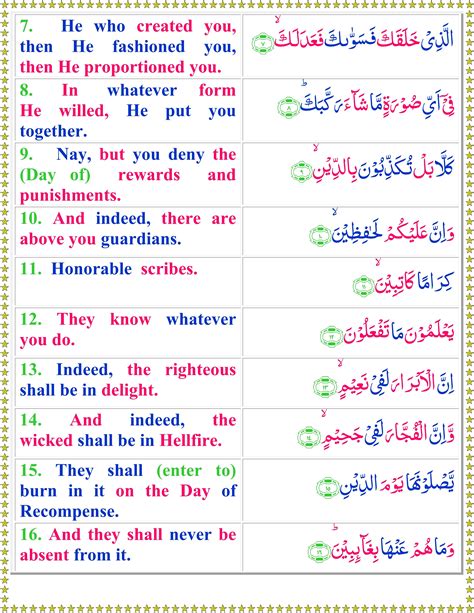 7. He who created you,
then He fashioned you,
then He proportioned you.
الَّذِیْ خَلَقَكَ فَسَوّٰىكَ فَعَدَلَكَ ۙ۝۷
8. In whatever form
He willed, He put you
together.
فِیْۤ اَیِّ صُوْرَةٍ مَّا شَآءَ رَكَّبَكَ ؕ۝۸
9. Nay, but you deny the
(Day of) rewards and
punishments.
كَلَّا بَلْ تُكَذِّبُوْنَ بِالدِّیْنِ ۙ۝۹
10. And indeed, there are
above you guardians.
وَاِنَّ عَلَیْكُمْ لَحٰفِظِیْنَ ۙ۝۱۰
11. Honorable scribes.
كِرَامًا كَاتِبِیْنَ ۙ۝۱۱
12. They know whatever
you do.
یَعْلَمُوْنَ مَا تَفْعَلُوْنَ ۝۱۲
13. Indeed, the righteous
shall be in delight.
اِنَّ الْاَبْرَارَ لَفِیْ نَعِیْمٍ ۙ۝۱۳
14. And indeed, the
wicked shall be in Hellfire.
وَّاِنَّ الْفُجَّارَ لَفِیْ جَحِیْمٍ ۙ۝۱۴
15. They shall (enter to)
burn in it on the Day of
Recompense.
یَّصْلَوْنَهَا یَوْمَ الدِّیْنِ ۝۱۵
16. And they shall never be
absent from it.
وَمَا هُمْ عَنْهَا بِغَآىِٕبِیْنَ ؕ۝۱۶